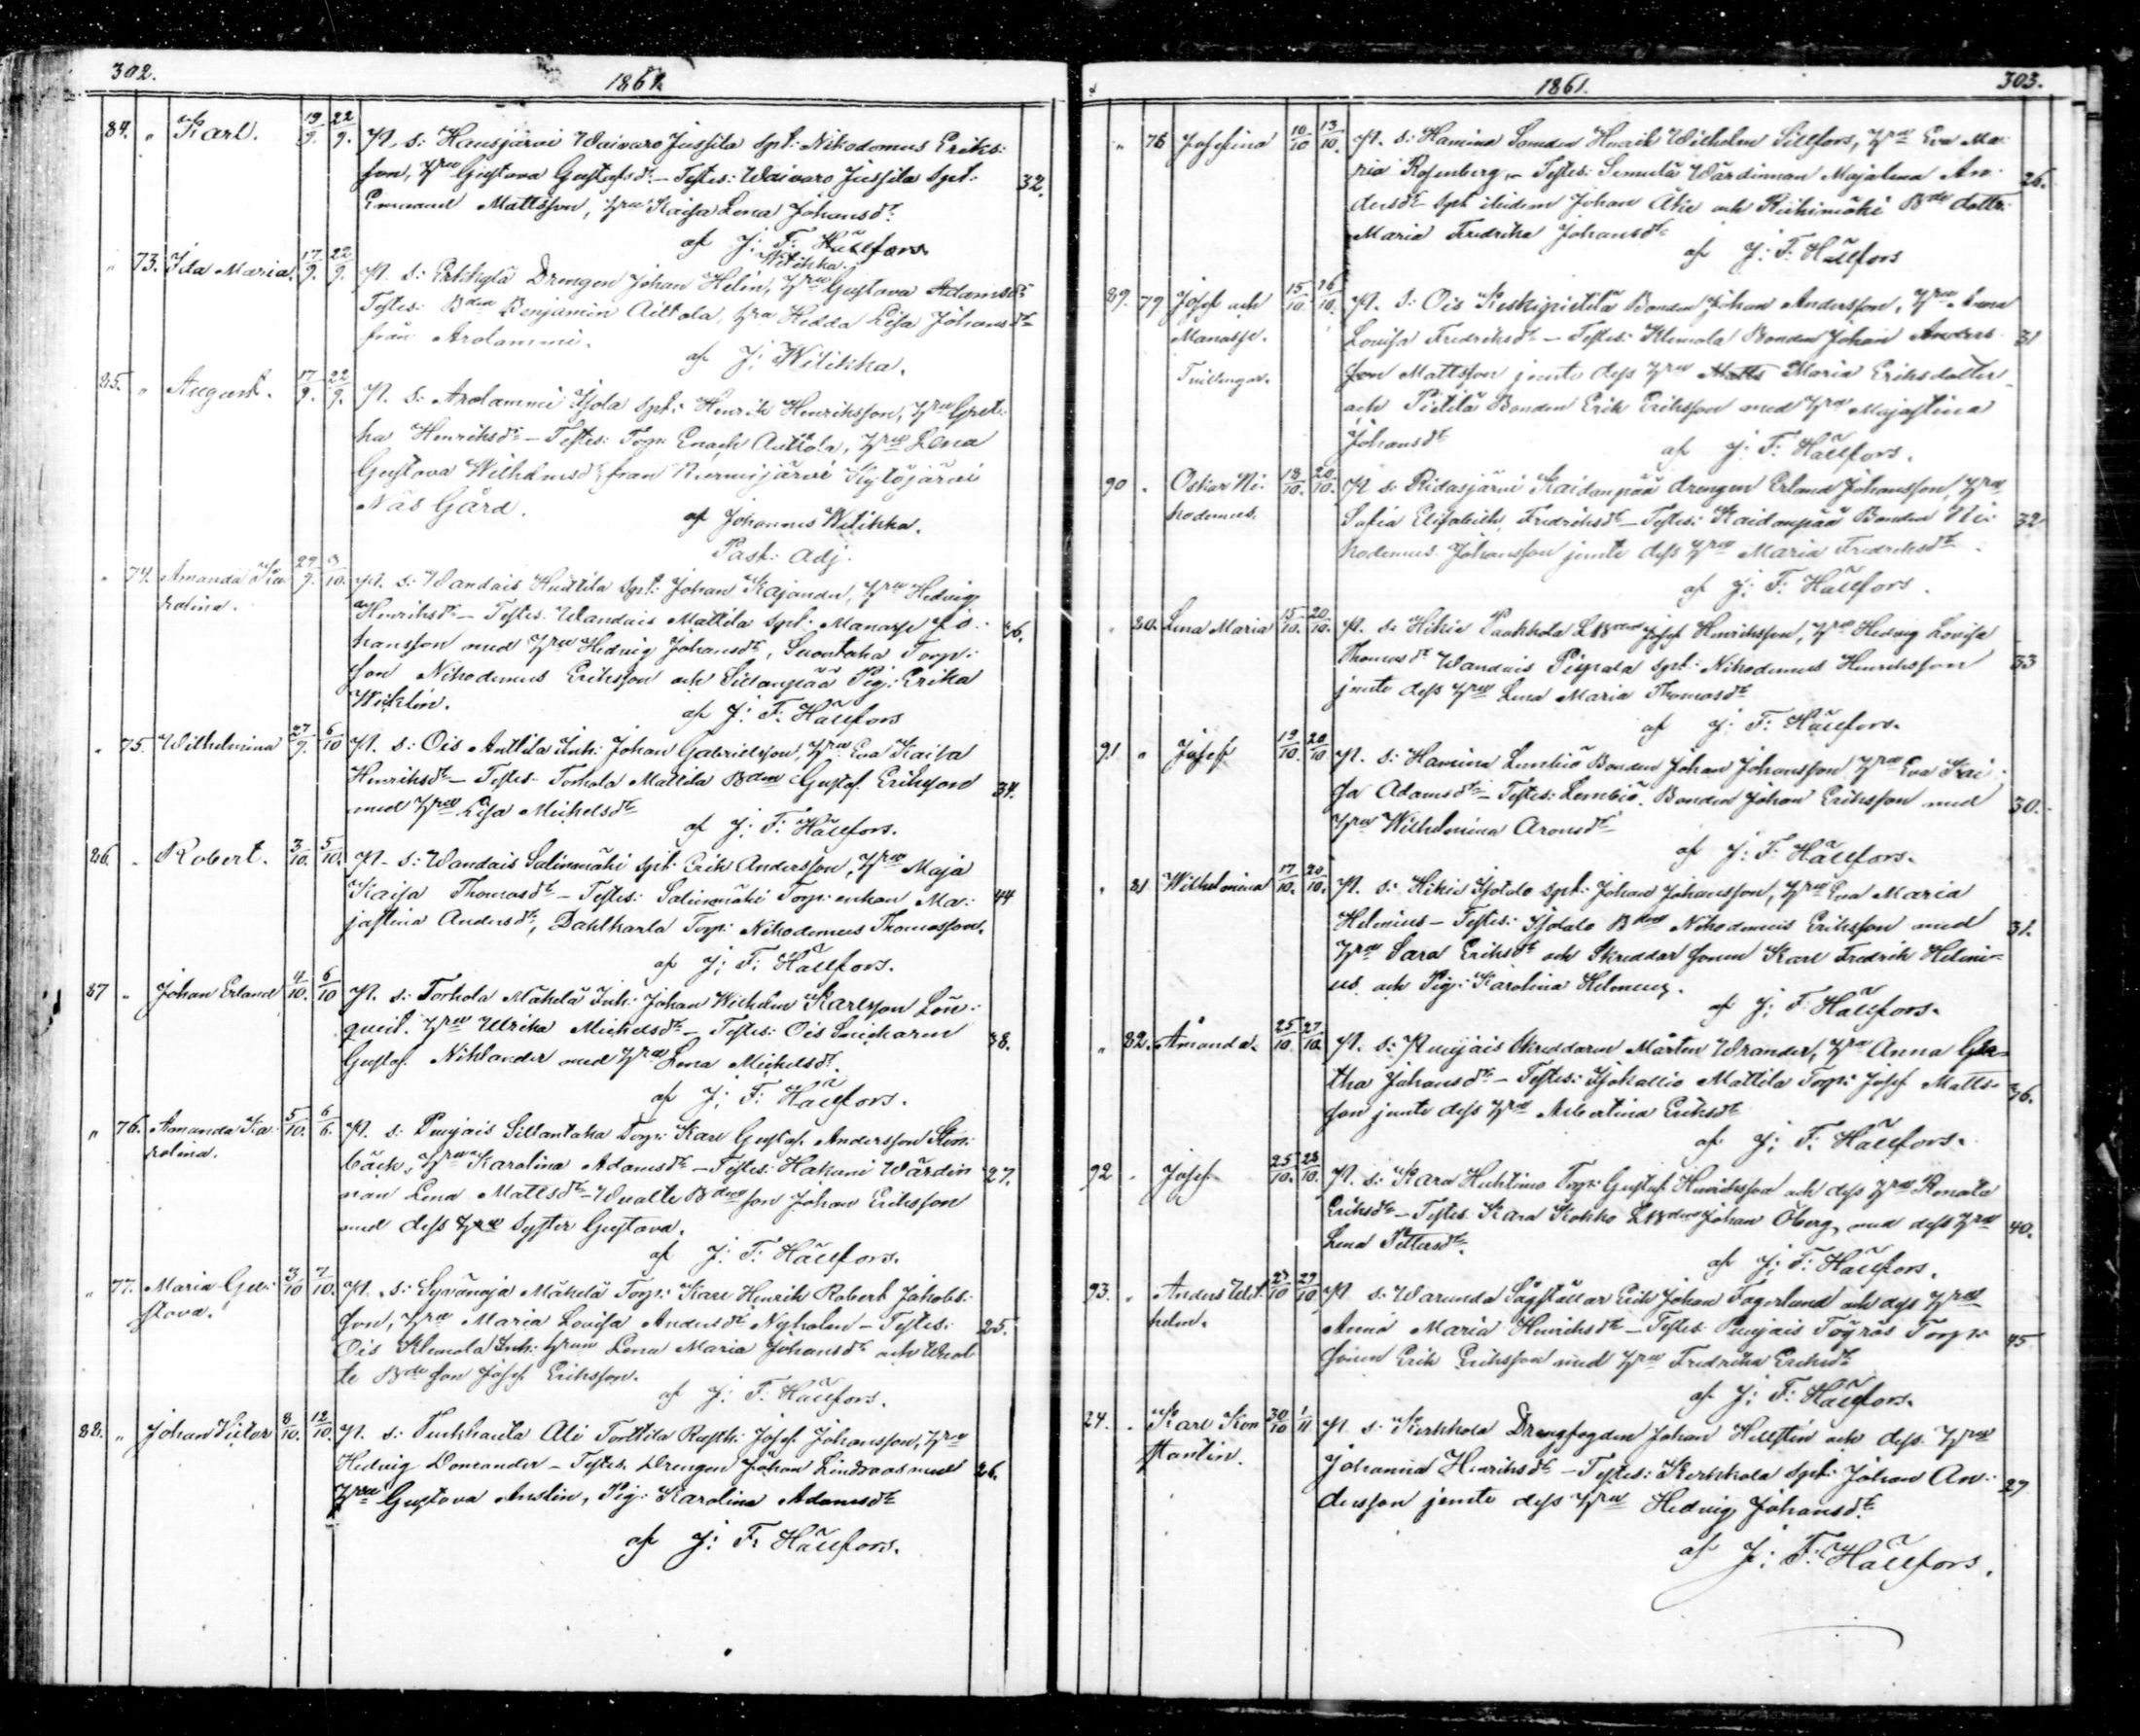 302.
1861.
84. " Karl. 19/9. 22/9. P. s: Hausjärvi Waivaro Jussila Spt: Nikodemus Eriks:
son, Hru Gustava Gustafsdr – Testes: Waivaro Jussila Spt: 32.
Emanuel Mattsson, Hru Kaisa Lena Johansdr
af J: F: Hällfors
" 73. Ida Maria. 17/9. 22/9. P. s: Erkkylä Drengen Johan Helin, Hru Gustava Adamsdr
Testes: Bden Benjamin Aittola, hru Hedda Lisa Johansdr
från Arolammi.
af J: Witikka.
85. " August. 17/9. 22/9. P. s: Arolammi Spt: Henrik Henriksson, Hru Gret:
ha Henriksdr – Testes: Torp: Enoch Anttola, Hru Lena
Gustava Wilhelmsdr från Kytöjärvi
Näs Gård.
af Johannes Witikka.
Past: Adj.
" 74. Amanda Ka 29/9. 3/10. P. s: Wandais Huttila Spt: Johan Kajander, Hru Hedvig
rolina. Henriksdr – Testes: Wandais Mattila Spt: Manasse Jo: 26.
hansson med Hru Hedvig Johansdr, Suontaka Torp:
son Nikodemus Eriksson och Sillanpää Pig: Erika
Wicklin.
af J: F: Hällfors
" 75. Wilhelmina 27/9. 6/10 P. s: Ois Anttila Inh: Johan Gabrielsson, Hru Eva Kaisa
Henriksdr – Testes: Torhola Mattila Bden Gustaf Eriksson 34.
med Hru Lisa Michelsdr
af J: F: Hällfors.
86. " Robert. 3/10. 5/10. P. s: Wandais Salinmäki Spt: Erik Andersson, Hru Maja
Kaisa Thomasdr – Testes: Salinmäki Torp: enkan Ma: 44
jastina Andersdr, Dahlkarla Torp: Nikodemus Thomasson.
af J: F: Hällfors.
87 " Johan Erland 4/10. 6/10 P. s: Torhola Mäkelä Inh: Johan Wilhelm Karlsson Lön:
qvist. Hru Ulrika Michelsdr – Testes: Ois Snickaren 38.
Gustaf Nihlander med Hru Lena Michelsdr.
af J: F: Hällfors.
" 76. Amanda Ka: 5/10. 6/6. P. s: Puujais Sillantaka Torp: Karl Gustaf Andersson Sten:
rolina. bäck, Hru Karolina Adamsdr – Testes: Hakani Wärdin 27.
nan Lena Mattsdr – Wualte Bdens son Johan Eriksson
med dess Hru Syster Gustava.
af J: F: Hällfors.
" 77. Maria Gu: 3/10 7/10. P. s: Syvänoja Mäkelä Torp: Karl Henrik Robert Jakobs:
stava. son, Hru Maria Lovisa Andersdr Nyholm – Testes: 25.
Ois Klemola Inh: hrun Lena Maria Johansdr och Wual
te Bde son Josef Eriksson.
af J: F: Hällfors.
88. " Johan Victor 8/10. 12/10. P. s: Turkhauta Ali Torttila Rusth: Josef Johansson, Hru
Hedvig Domander – Testes: Drengen Johan Lindroos med 26.
Hru Gustava Austin, Pig: Karolina Adamsdr
af J: F: Hällfors.
1861.
303.
" 78 Josefina 10/10 13/10. P. s: Hamina Henrik Wilhelm Sillfors, Hru Eva Ma:
ria Rosenberg – Testes: Semulä Wärdinnan Majalena An: 26.
dersdr Spt ibidem Johan Åke och Riihimäki Bde dottr:
Maria Fredrika Johansdr
af J: F: Hällfors
89. 79 Josef och 15/10. 16/10. P. s: Ois Keskipietilä Bonden Johan Andersson, Hru Anna
Manasse. Lovisa Fredriksdr – Testes: Klemola Bonden Johan Anders: 31
Tvillingar. son Mattsson jemte dess Hru Maria Eriksdotter
och Pietilä Bonden Erik Eriksson med Hru Majastina
Johansdr
af J: F: Hällfors.
90 . Oskar Ni: 18/10. 20/10. P. s: Ridasjärvi Kaidanpää drengen Erland Johansson, Hru
kodemus. Sofia Elisabeth Fredriksdr – Testes: Kaidanpää Bonden Ni: 32
kodemus Johansson jemte dess Hru Maria Fredriksdr
af J: F: Hällfors.
" 80. Lena Maria 15/10. 20/10. P. s: Hikiä Paakkola Josef Henriksson, Hru Hedvig Lovisa
Thomasdr Wandais Piippala Spt: Nikodemus Henriksson 33
jemte dess Hru Lena Maria Thomasdr
af J: F: Hällfors.
91 " Josef 19/10. 20/10 P. s: Hamina Lembiö Bonden Johan Johansson Hru Eva Kai:
sa Adamsdr – Testes: Lembiö Bonden Johan Eriksson med 30.
Hru Wilhelmina Aronsdr
af J: F: Hällfors.
" 81 Wilhelmina 17/10. 20/10. P. s: Hikiä Spt: Johan Johansson, Hru Eva Maria
Helenius – Testes: Bden Nikodemus Eriksson med 31.
Hru Sara Eriksdr och Skreddar sonen Karl Fredrik Heleni=
us och Pig: Karolina Helenius.
af J: F: Hällfors.
" 82. Amanda. 25/10. 27/10. P. s: Puujais Skreddaren Mårten Wrander, Hru Anna Gre=
tha Johansdr – Testes: Mattila Torp: Josef Matts= 36.
son jemte dess Hru Albertina Eriksdr
af J: F: Hällfors.
92 . Josef. 25/10. 28/10. P. s: Kara Huhtimo Torp: Gustaf Henriksson och dess Hru Renata
Eriksdr – Testes: Kara Kokko Johan Öberg med dess Hru 40.
Lena Pettersdr.
af J: F: Hällfors.
93. . Anders Wil: 27/10 29/10 P. s: Warunda Erik Johan Fagerlund och dess Hru
helm. Anna Maria Henriksdr – Testes: Puujais Torp: 45
sonen Erik Eriksson med Hru Fredrika Eriksdr
af J: F: Hällfors.
24. . Karl Kon 30/10 1/11 P. s: Kerkkola Drengfogden Johan Hellstén och dess Hru
stantin. Johanna Henriksdr – Testes: Kerkkola Spt: Johan An: 27
dersson jemte dess Hru Hedvig Johansdr.
af J: F: Hällfors.